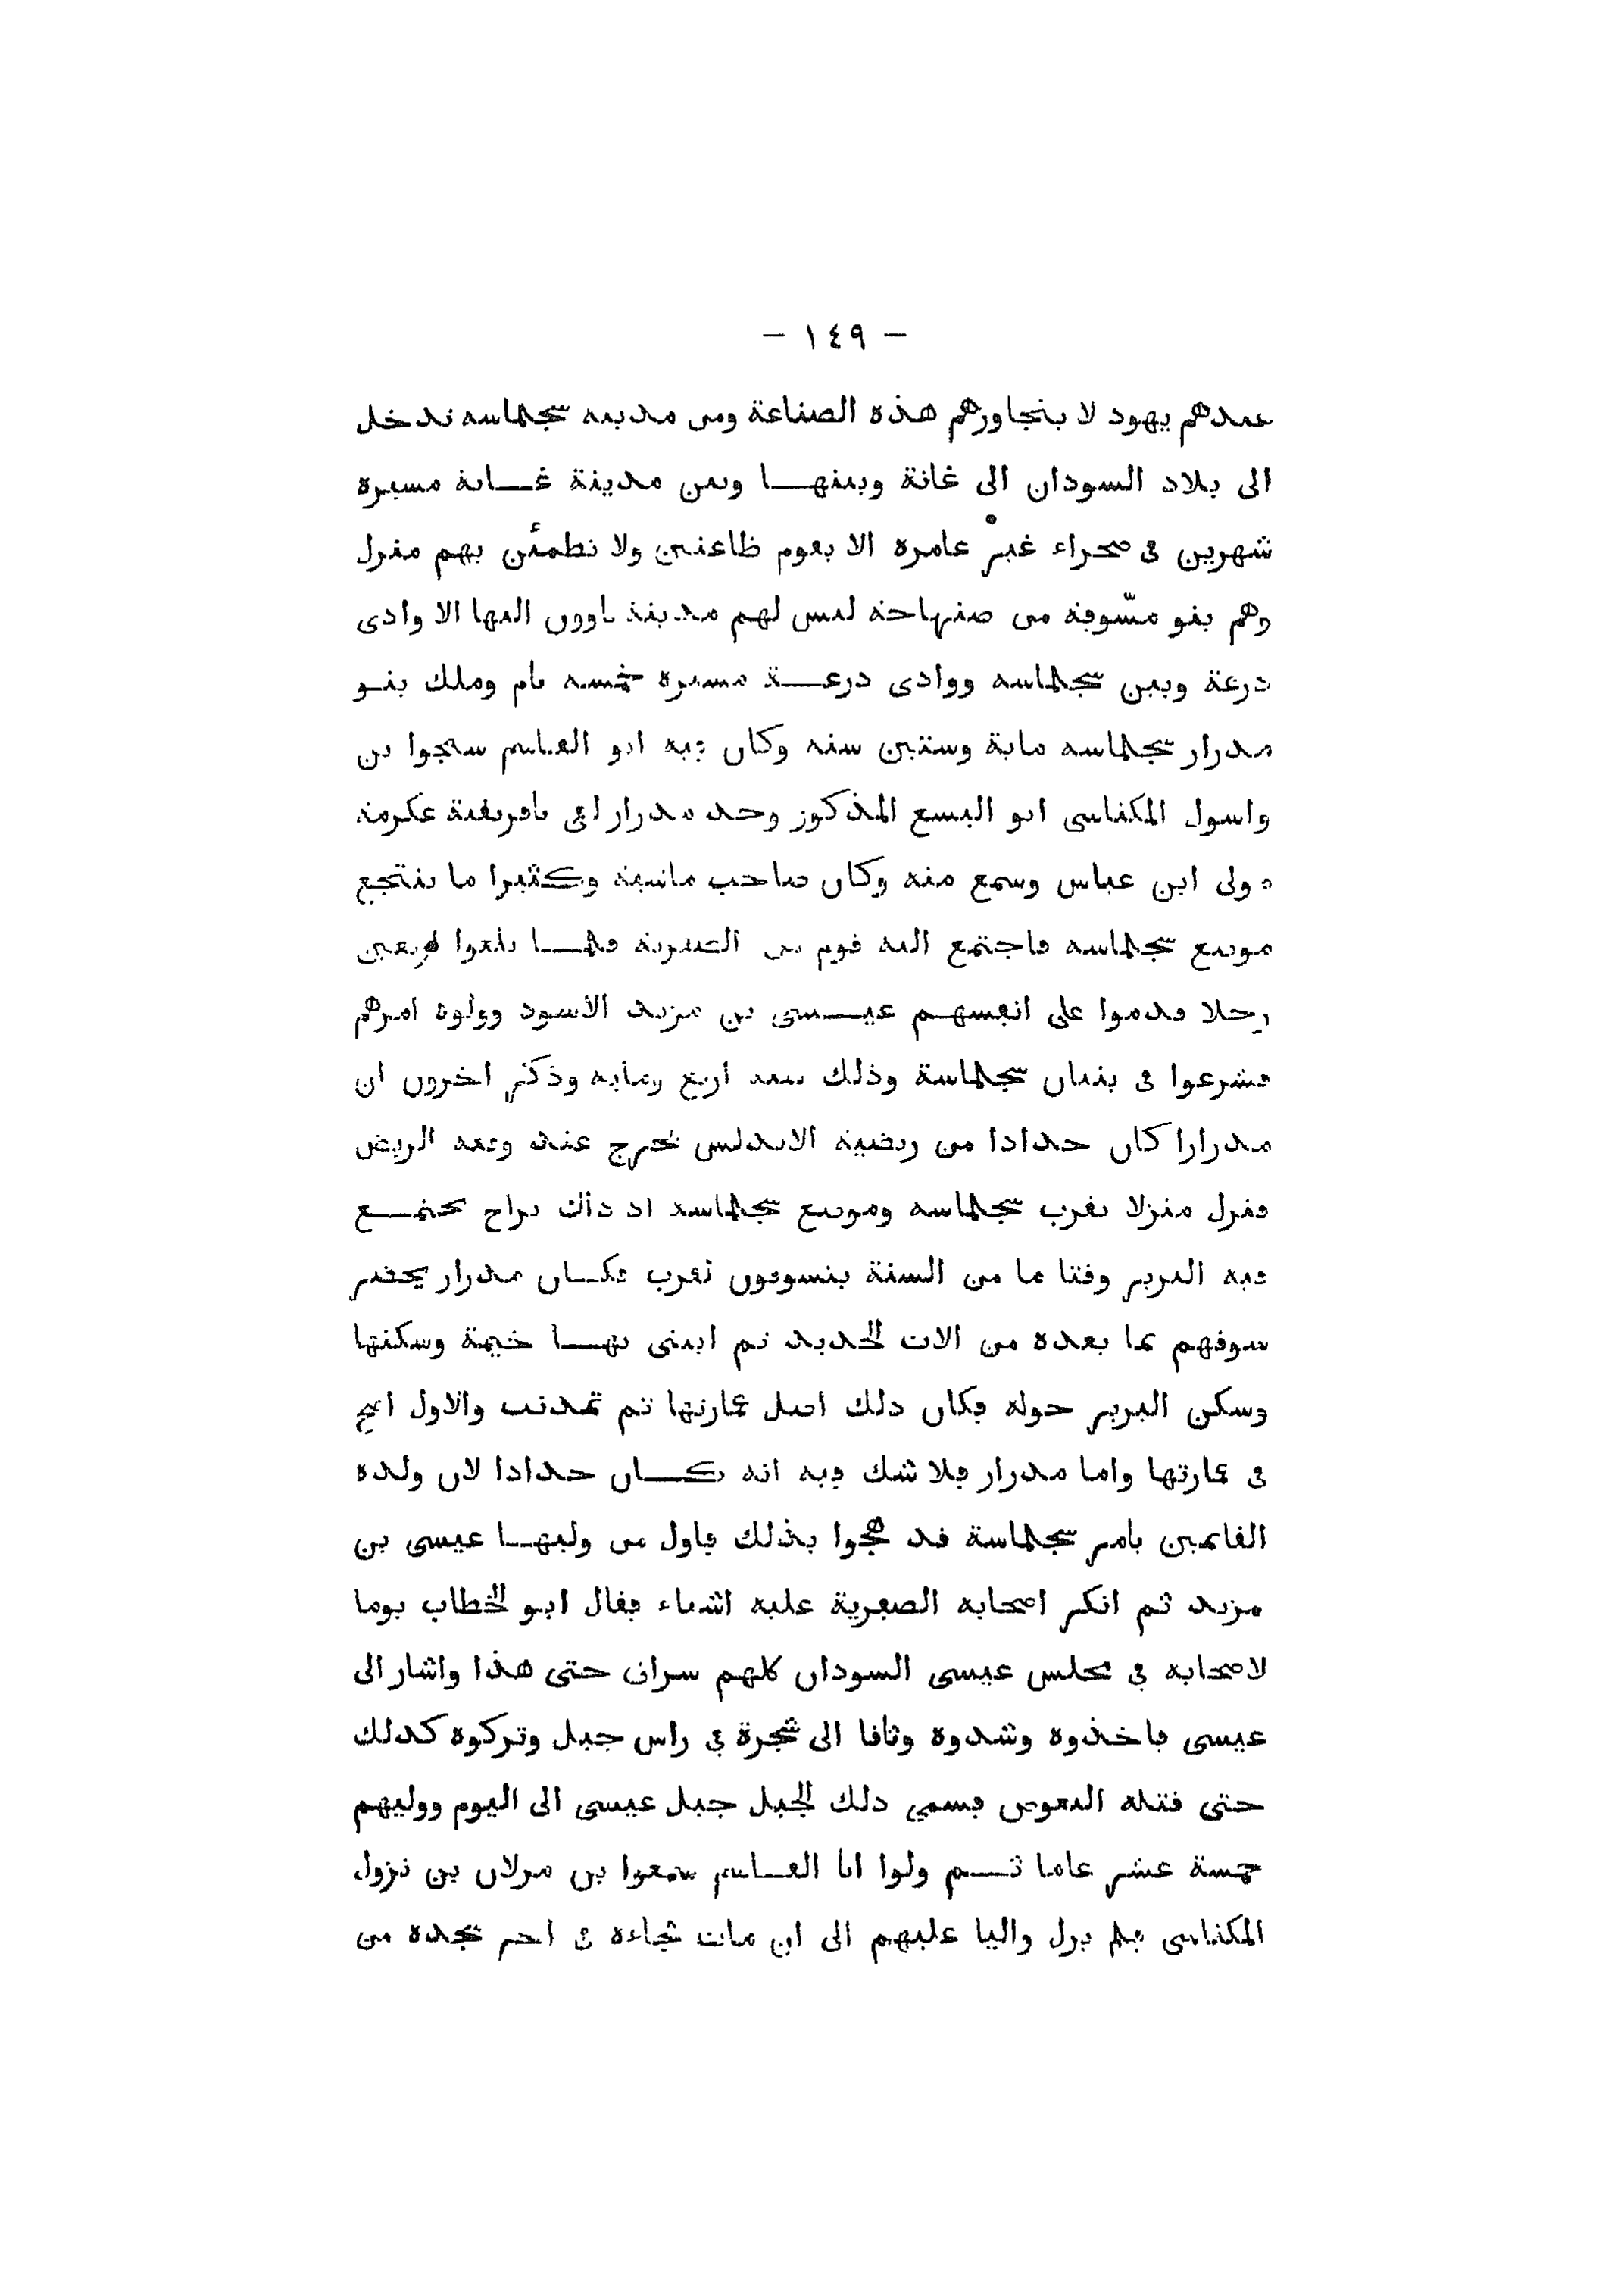 – ١٤٩ –
عندهم يهود لا يتجاوزهم هذه الصناعة ومن مدينة سجلماسة تدخل
الى بلاد السودان الى غانة وبينها وبين مدينة غانة مسيرة
شهرين في صحراء غير عامرة الا بقوم ظاعنين ولا تطمئن بهم منزل
وهم بنو مسّوفة من صنهاجة ليس لهم مدينة ياوون اليها الا وادى
درعة وبين سجلماسة ووادى درعة مسيرة خمسة ايام وملك بنو
مدرار سجلماسة ماية وستين سنة وكان فيه ابو القاسم سمجوا بن
واسول المكناسى ابو اليسع المذكور وجد مدرار لقى بافريقية عكرمة
مولى ابن عباس وسمع منه وكان صاحب ماشية وكثيرا ما ينتجع
موضع سجلماسة فاجتمع اليه قوم من الصفرية فلما بلغوا اربعين
رجلا قدموا على انفسهم عيسى بن مزيد الاسود وولوه امرهم
فشرعوا في بنيان سجلماسة وذلك سنة اربع وماية وذكر اخرون ان
مدرارا كان حدادا من ربضية الاندلس فخرج عند وقعة الربض
فنزل منزلا بقرب سجلماسة وموضع سجلماسة اذ ذاك براح يجتمع
فيه البربر وقتا ما من السنة يتسوقون فكان مدرار يحضر
سوقهم بما يعده من الات الحديد ثم ابتنى بها خيمة وسكنها
وسكن البربر حوله فكان ذلك اصل عمارتها ثم تمدنت والاول اصح
في عمارتها واما مدرار فلا شك فيه انه كان حدادا لان ولده
القايمين بامر سجلماسة قد هجوا بذلك فاول من وليها عيسى بن
مزيد ثم انكر اصحابه الصفرية عليه اشياء فقال ابو الخطاب يوما
لاصحابه في مجلس عيسى السودان كلهم سراق حتى هذا واشار الى
عيسى فاخذوه وشدوه وثاقا الى شجرة في راس جبل وتركوه كذلك
حتى قتله البعوض فسمي ذلك الجبل جبل عيسى الى اليوم ووليهم
خمسة عشر عاما ثم ولوا ابا القاسم سمغوا بن مزلان بن نزول
المكناسى فلم يزل واليا عليهم الى ان مات فجاءة في اخر سجدة من